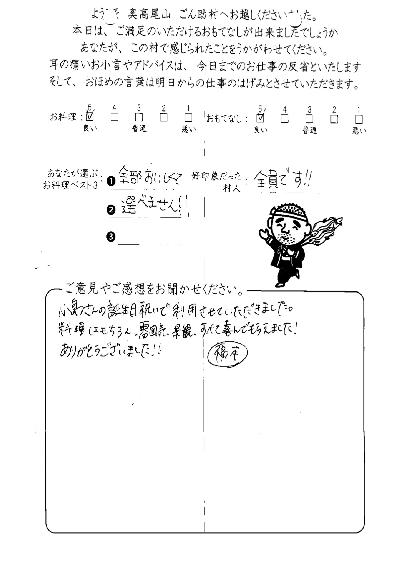 ようこそ 奥高尾山 ごん助村へお越しくださいました。
本日は、ご満足のいただけるおもてなしが出来ましたでしょうか
あなたが、この村で感じられたことをうかがわせてください。
耳の痛いお小言やアドバイスは、今日までのお仕事の反省といたします
そして、おほめの言葉は明日からの仕事のはげみとさせていただきます。
お料理: 5 4 3 2 1 おもてなし: 5 4 3 2 1
良い 普通 悪い 良い 普通 悪い
あなたが選ぶ お料理ベスト3 ❶ 全部おいしくて 好印象だった 村人 全員です!!
❷ 選べません!!
❸
ご意見やご感想をお聞かせください。
さんの誕生日祝いで利用させていただきました。
料理はもちろん、雰囲気、景観、すべて喜んでもらえました!
ありがとうございました!!